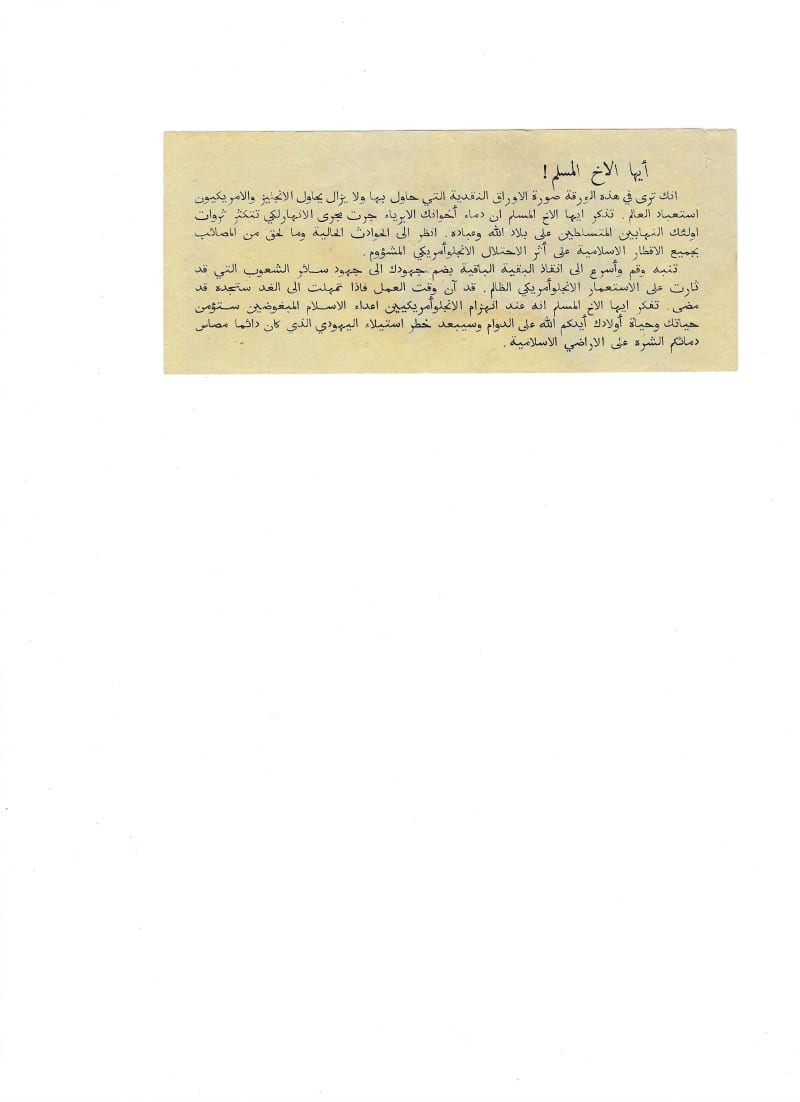 أيها الاخ المسلم !
انك ترى في هذه الورقة صورة الاوراق النقدية التي حاول بها ولا يزال يحاول الانجليز والامريكيون
استعباد العالم . تذكر ايها الاخ المسلم ان دماء أخوانك الابرياء جرت مجرى الانهار لكي تتكثر ثروات
اولئك النهابين المتسلطين على بلاد الله وعباده . انظر الى الحوادث الحالية وما لحق من المصائب
بجميع الاقطار الاسلامية على أثر الاحتلال الانجلوأمريكي المشؤوم .
تنبه وقم وأسرع الى انقاذ البقية الباقية بضم جهودك الى جهود سائر الشعوب التي قد
ثارت على الاستعمار الانجلوأمريكي الظالم . قد آن وقت العمل فاذا تمهلت الى الغد ستجده قد
مضى . تفكر ايها الاخ المسلم انه عند انهزام الانجلوأمريكيين اعداء الاسلام المبغوضين ستؤمن
حياتك وحياة أولادك أيدكم الله على الدوام وسيبعد خطر استيلاء اليهودي الذي كان دائما مصاص
دمائكم الشره على الاراضي الاسلامية .